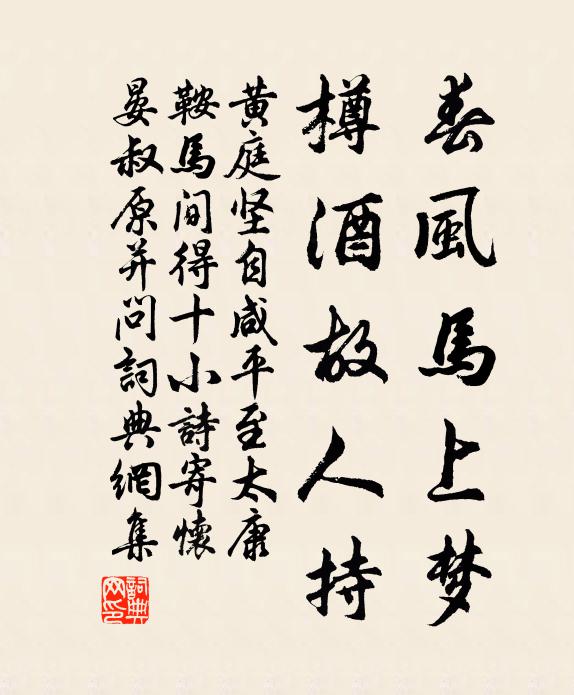 春風馬上梦
樽酒故人持
黄庭坚自咸平至太康
鞍馬间得十小詩寄懷
晏叔原并问詞典網集
詞典網印